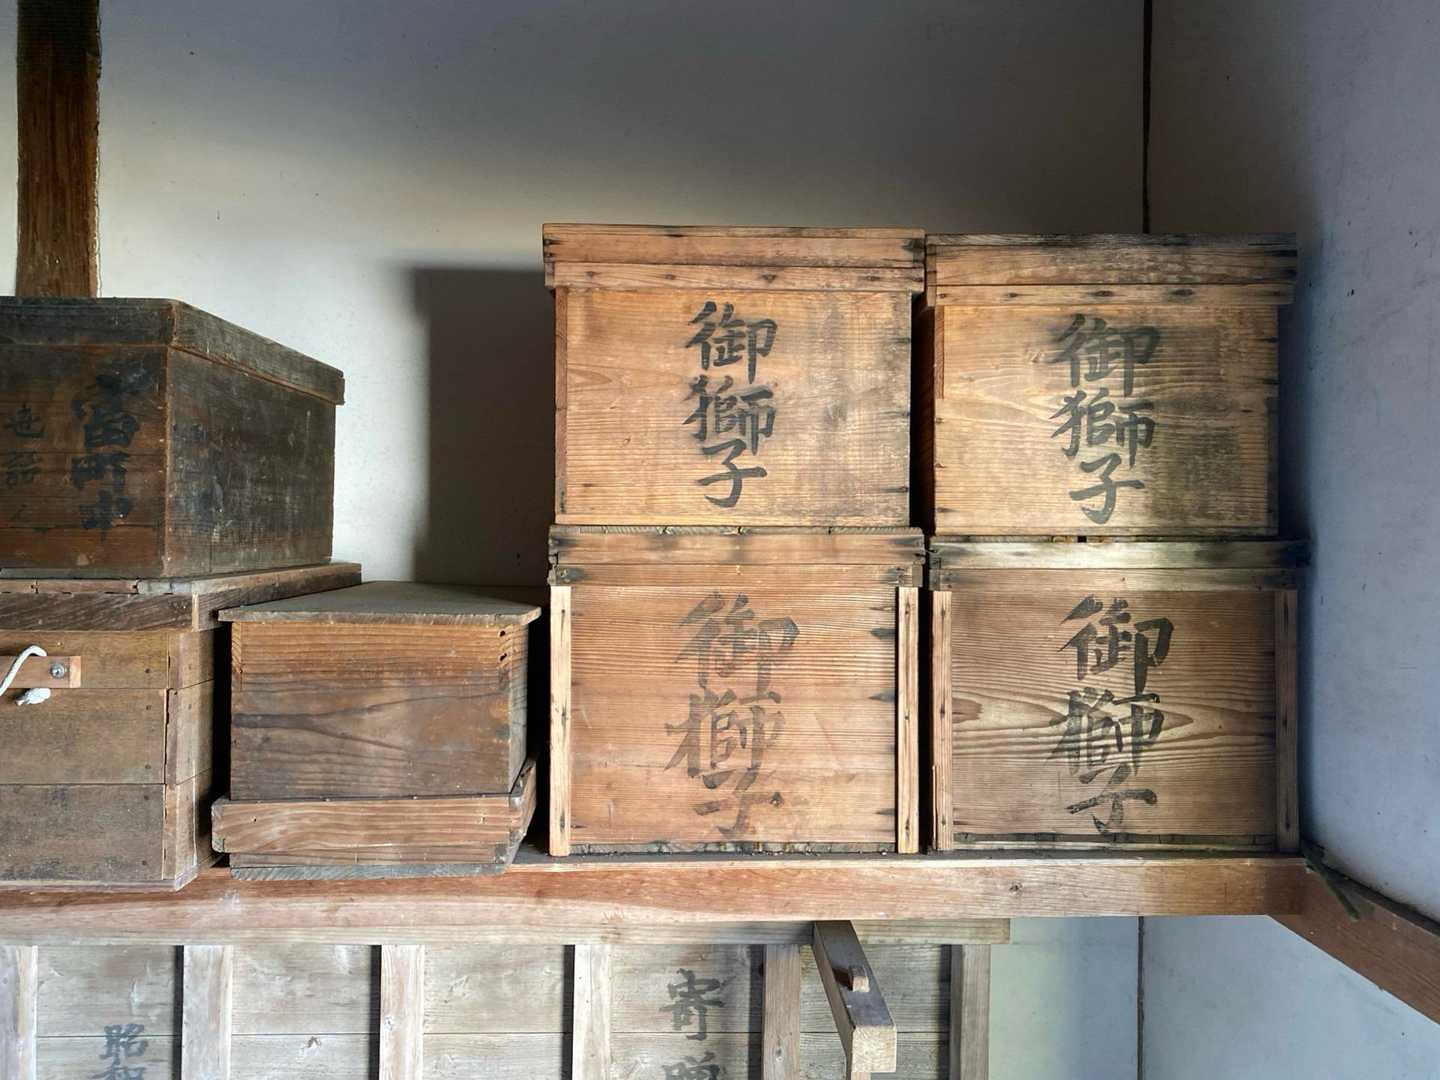 御獅子
御獅子
御獅子
御獅子
當町中
世話人
寄贈
昭和